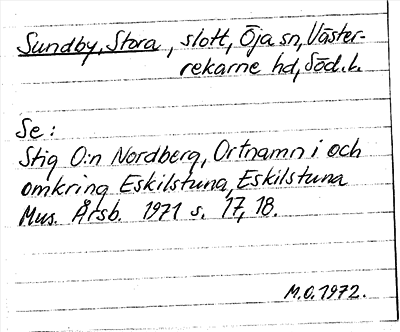 Sundby, Stora, slott, Öja sn, Väster-
rekarne hd, Söd. l.
Se:
Stig O:n Nordberg, Ortnamn i och
omkring Eskilstuna, Eskilstuna
Mus. Årsb. 1971 s. 17, 18.
M.O. 1972.